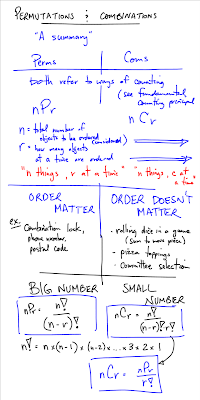 PERMUTATIONS & COMBINATIONS
"A summary"
Perms
Coms
both refer to ways of counting
(see fundamental
counting principal
nPr
nCr
n = total number of
objects to be ordered
(considered)
r = how many objects
at a time are ordered
"n things, r at a time"
"n things, r at a time"
ORDER
MATTER
ORDER DOESN'T
MATTER
ex.
Combination lock,
phone number,
postal code
• rolling dice in a game
(sum to move piece)
• pizza toppings
• committee selection
BIG NUMBER
SMALL
NUMBER
nPr = n! / (n-r)!
nCr = n! / (n-r)! r!
n! = n x (n-1) x (n-2) x ... x 3 x 2 x 1
nCr = nPr / r!